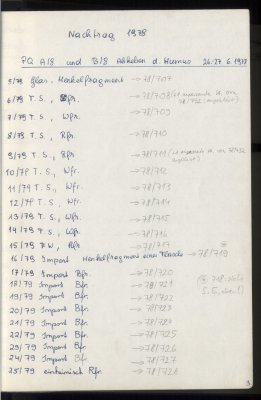 Nachtrag 1978
PQ A/8 und B/8 Abheben d. Humus 26.-27. 6. 1978
5/79 Glas. Henkelfragment → 78/707
6/79 T.S., Rfr. → 78/708
7/79 T.S., Wfr. → 78/709
8/79 T.S., Rfr. → 78/710
9/79 T.S., Rfr. → 78/711
10/79 T.S., Wfr. → 78/712
11/79 T.S., Wfr. → 78/713
12/79 T.S., Wfr. → 78/714
13/79 T.S., Wfr. → 78/715
14/79 T.S., Wfr. → 78/716
15/79 FW, Rfr. → 78/717
16/79 Import Henkelfragment einer Flasche → 78/719
17/79 Import Rfr. → 78/720
18/79 Import Bfr. → 78/721
19/79 Import Bfr. → 78/722
20/79 Import Bfr. → 78/723
21/79 Import Bfr. → 78/724
22/79 Import Bfr. → 78/725
23/79 Import Bfr. → 78/726
24/79 Import Bfr. → 78/727
25/79 einheimisch Rfr. → 78/728